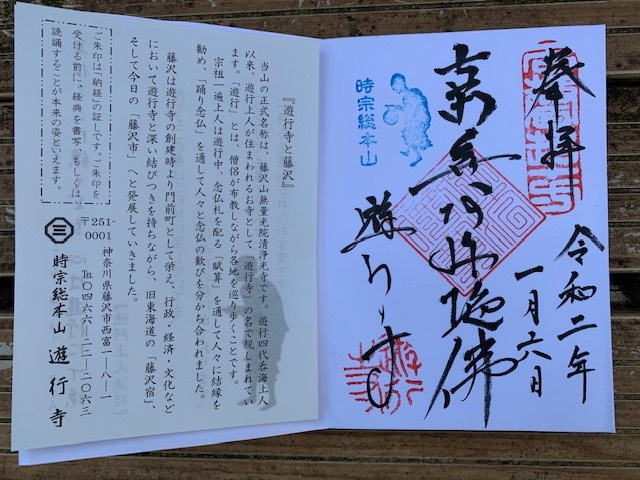 奉拝
令和二年
一月六日
南無阿弥陀佛
遊行寺
時宗総本山
『遊行寺と藤沢』
当山の正式な名称は、藤沢山無量光院清浄光寺です。遊行四代呑海上人
以来、遊行上人が住まわれるお寺として「遊行寺」の名で親しまれてい
ます。「遊行」とは、僧侶が布教しながら各地を巡り歩くことです。
宗祖一遍上人は遊行中、念仏札を配る「賦算」を通して人々に結縁を
勧め、「踊り念仏」を通して人々と念仏の歓びを分かち合われました。
藤沢は遊行寺の創建時より門前町として栄え、行政・経済・文化など
において遊行寺と深い結びつきを持ちながら、旧東海道の「藤沢宿」、
そして今日の「藤沢市」へと発展していきました。
ご朱印は「納経」の証しです。ご朱印を
受ける前に、経典を書写、もしくは
読誦することが本来の姿といえます。
〒251-0001
神奈川県藤沢市西富一-八-一
℡〇四六六-二二-二〇六三
時宗総本山 遊行寺